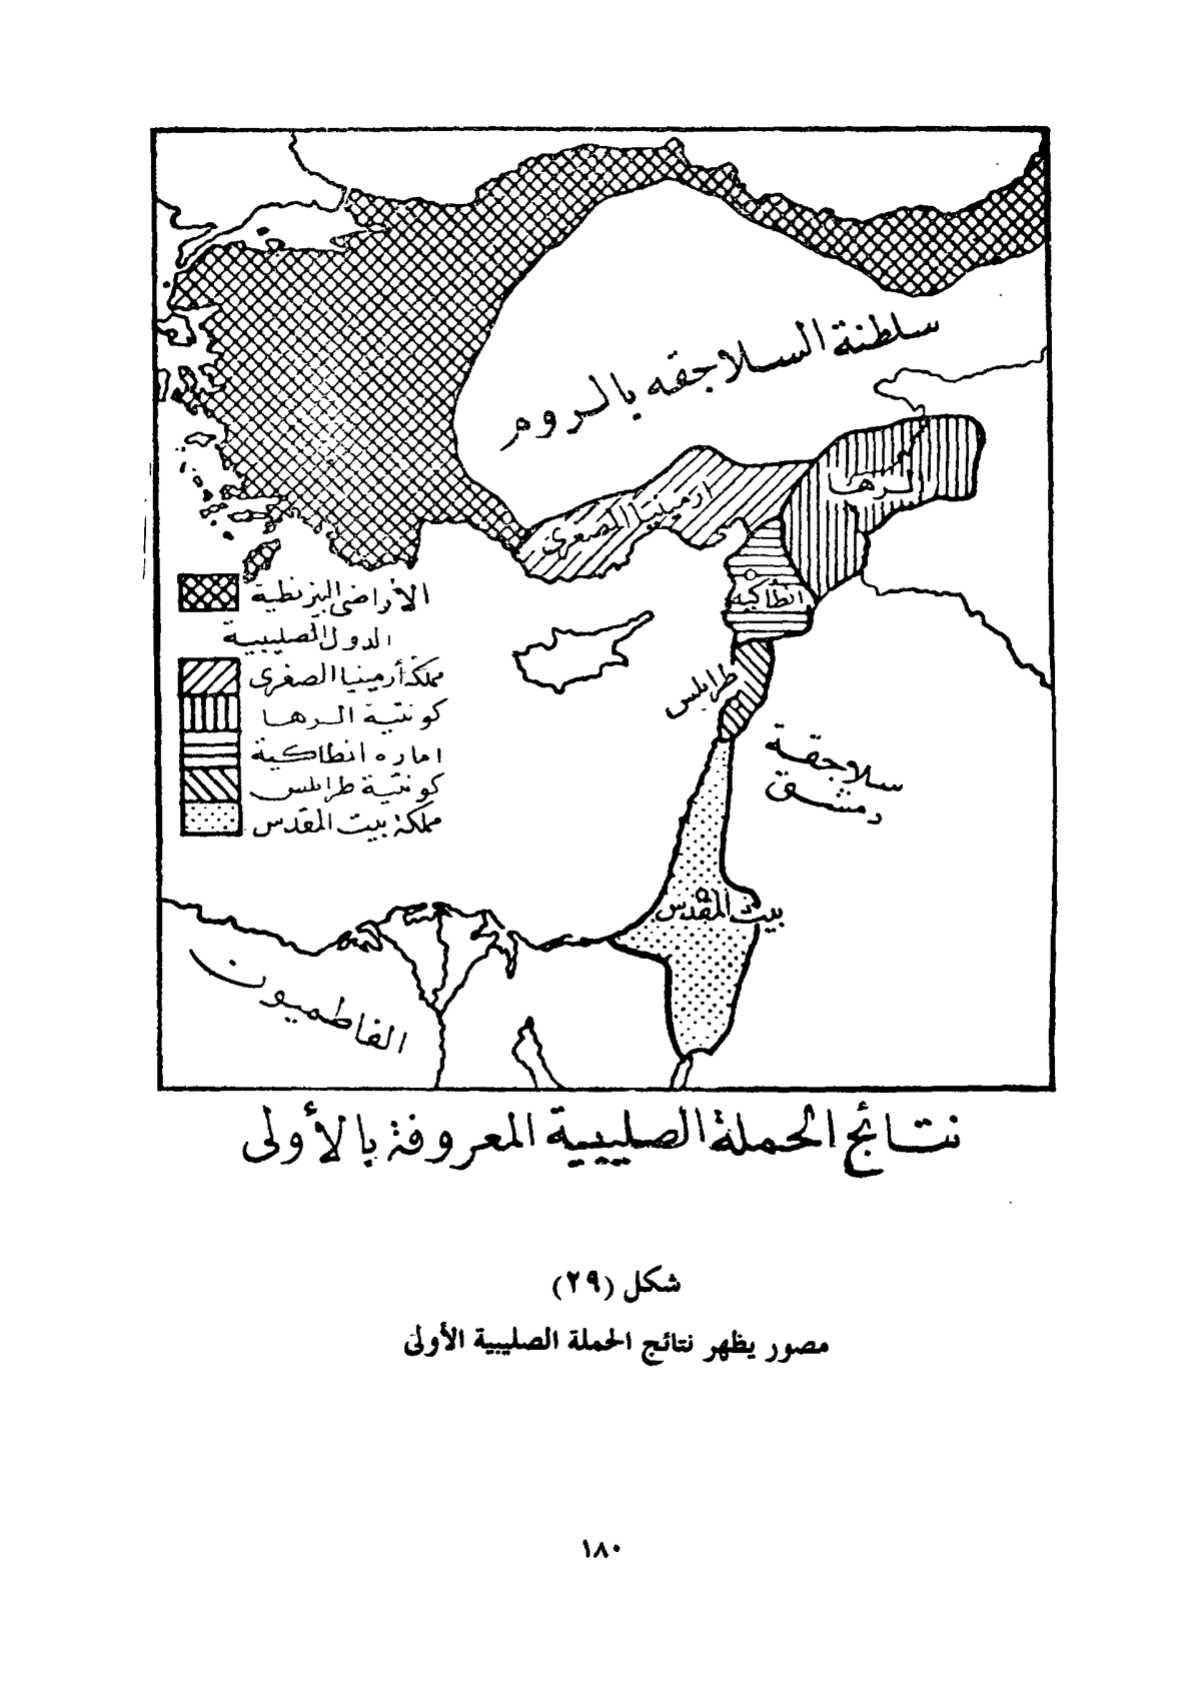 سلطنة السلاجقه بالروم
الرها
ارمينيا الصغرى
انطاكيه
طرابلس
سلاجقة
دمشق
بيت المقدس
الفاطميون
الأراضى البيزنطية
الدول الصليبية
مملكة أرمينيا الصغرى
كونتية الرها
اماره انطاكية
كونتية طرابلس
مملكة بيت المقدس
نتائج الحملة الصليبية المعروفة بالأولى
شكل (٢٩)
مصور يظهر نتائج الحملة الصليبية الأولى
١٨٠